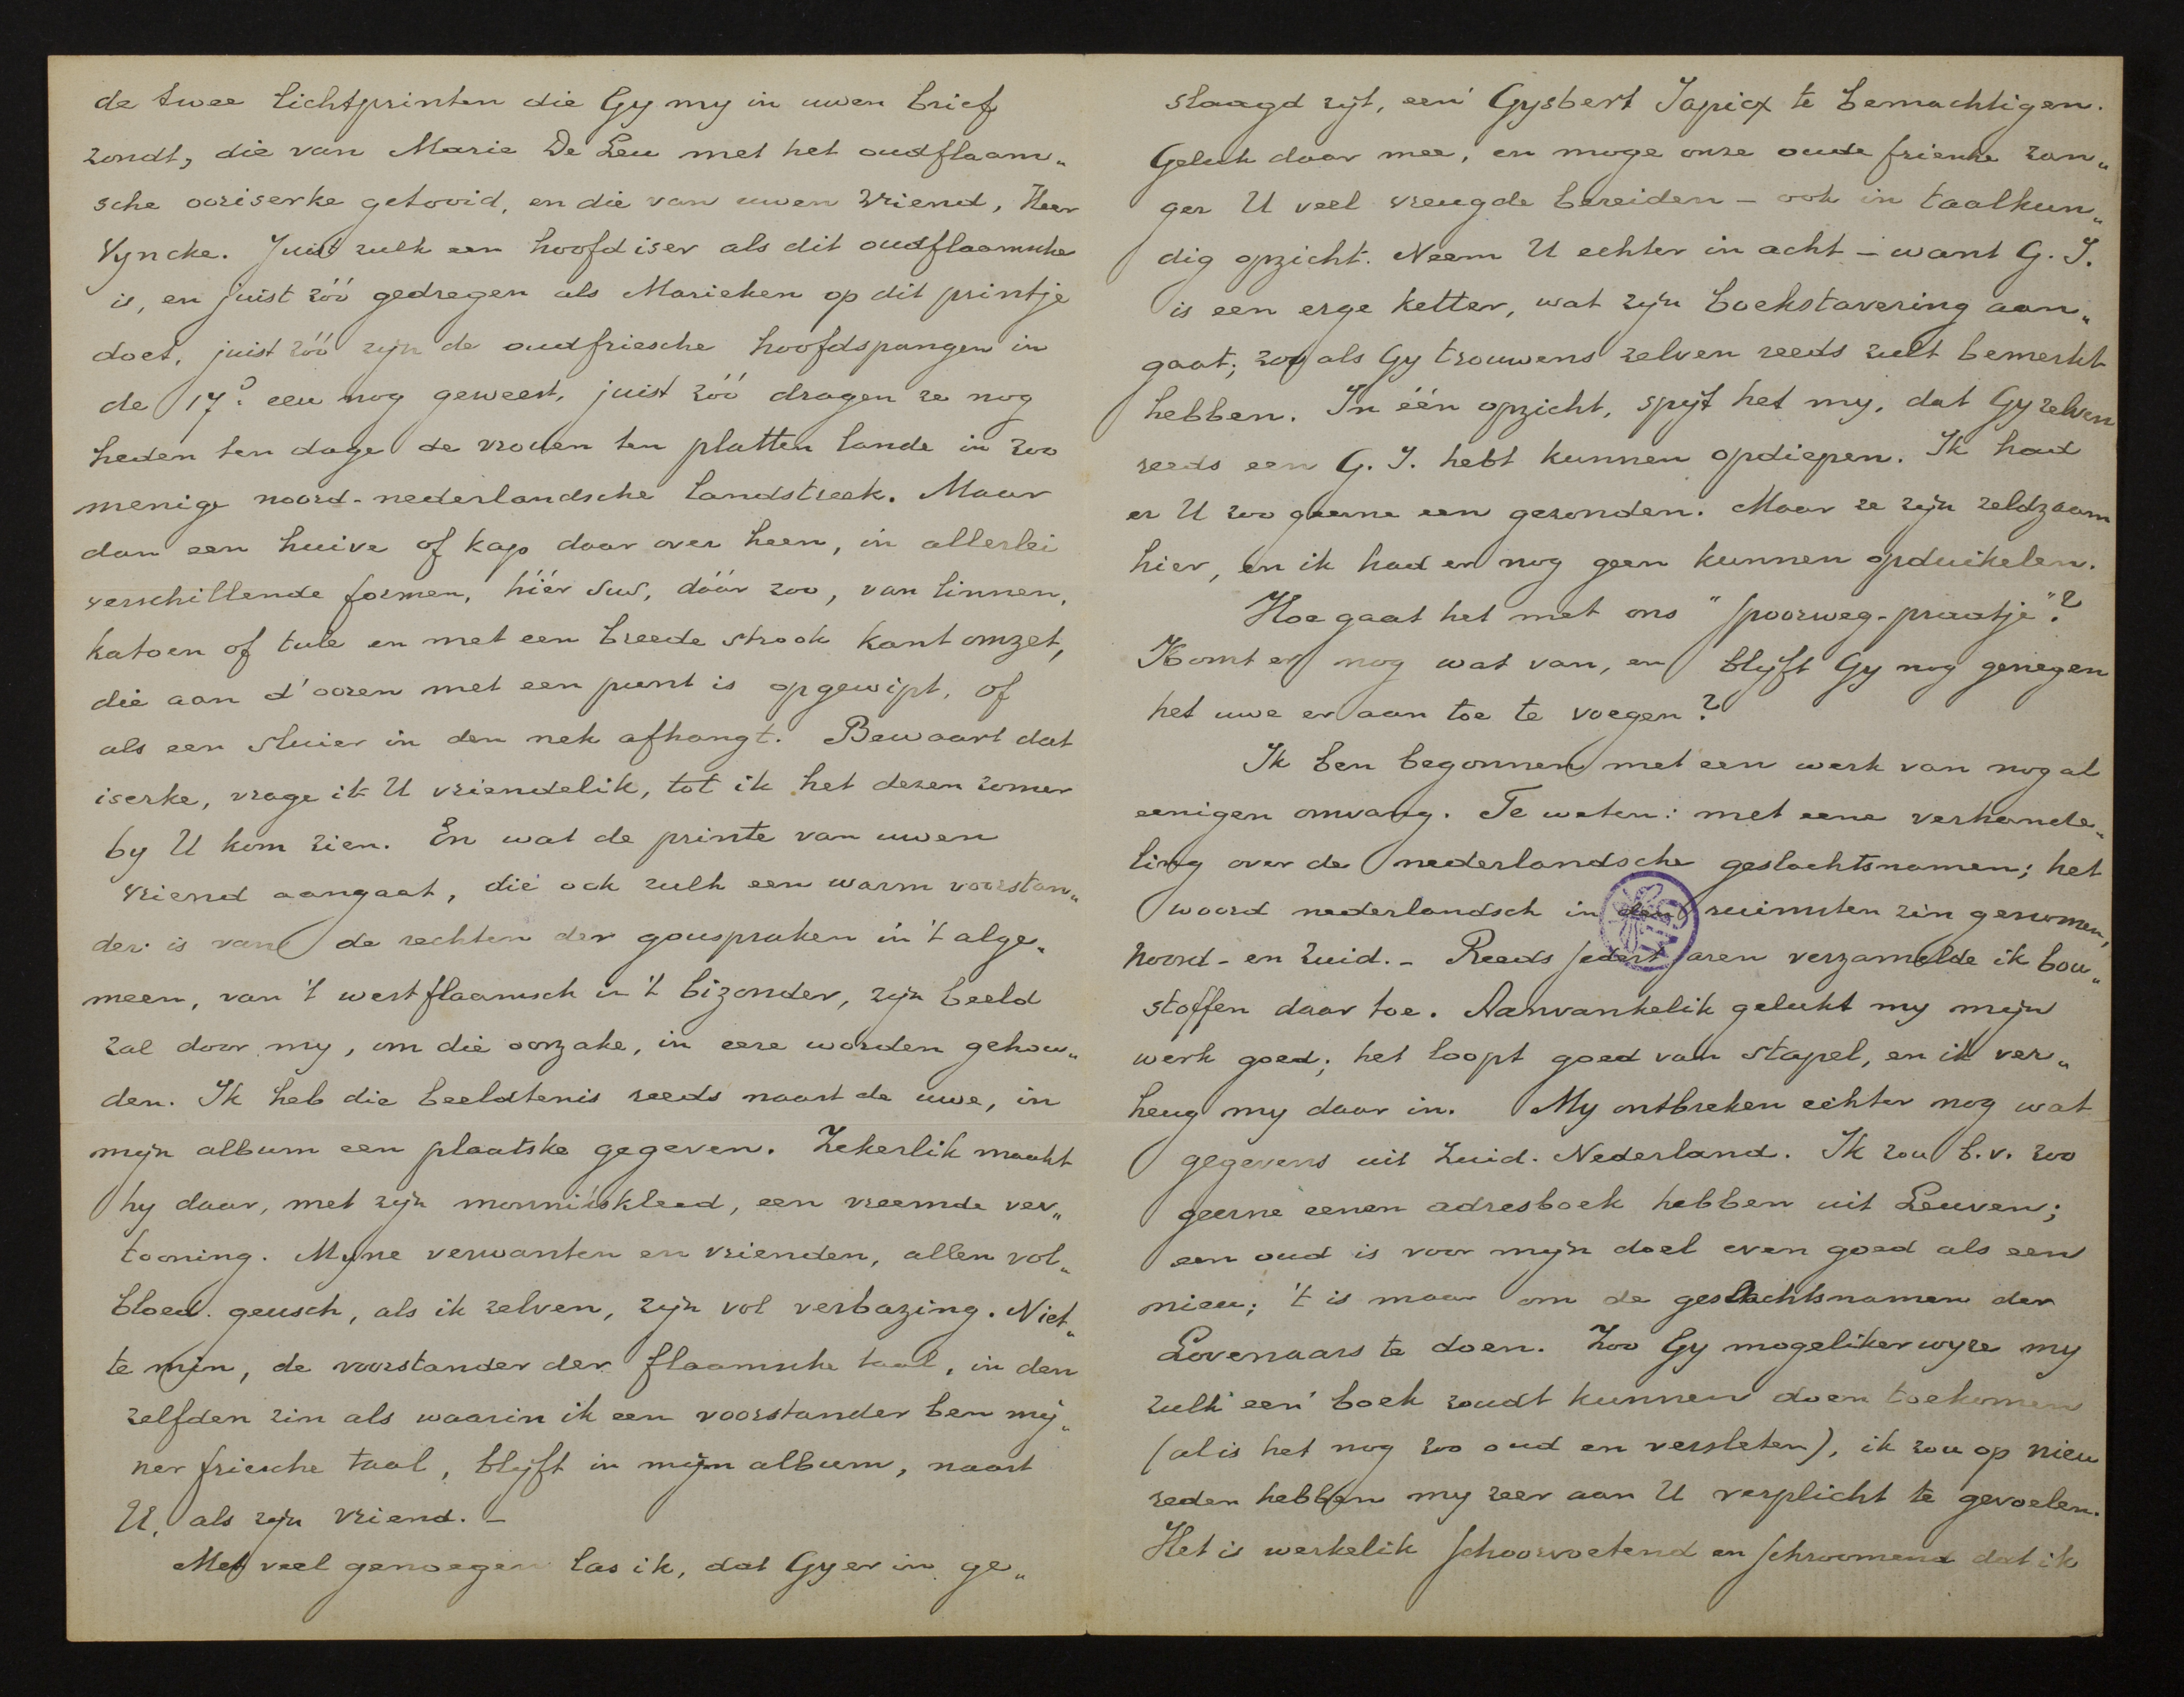 de twee lichtprinten die Gy my in uwen brief
zondt, die van Marie De Leu met het oudflaam„
sche ooriserke getooid, en die van uwen vriend, Heer
Vyncke. Juist zulk een hoofdiser als dit oudflaamsche
is, en juist zóó gedregen als Marieken op dit printje
doet, juist zóó zijn de oudfriesche hoofdspangen in
de 17e eeu nog geweest, juist zóó dragen ze nog
heden ten dage de vrouen ten platten lande in zoo
menige noord-nederlandsche landstreek. Maar
dan een huive of kap daar over heen, in allerlei
verschillende formen, híér sus, dáár zoo, van linnen,
katoen of tule en met een breede strook kant omzet,
die aan d'ooren met een punt is opgewipt, of
als een sluier in den nek afhangt. Bewaart dat
iserke, vrage ik U vriendelik, tot ik het dezen zomer
by U kom zien. En wat de printe van uwen
vriend aangaat, die ook zulk een warm voorstan„
der is van de rechten der gouspraken in 't alge„
meen, van 't westflaamsch in 't bizonder, zijn beeld
zal door my, om die oorzake, in eere worden gehou„
den. Ik heb die beeldtenis reeds naast de uwe, in
mijn album een plaatske gegeven. Zekerlik maakt
hy daar, met zijn monnikskleed, een vreemde ver„
tooning. Myne verwanten en vrienden, allen vol„
bloed geusch, als ik zelven, zijn vol verbazing. Niet„
te mijn, de voorstander der flaamsche taal, in den
zelfden zin als waarin ik een voorstander ben mij„
ner friesche taal, blyft in mijn album, naast
U, als zijn vriend. –
Met veel genoegen las ik, dat Gy er in ge„
slaagd zijt, een' Gysbert Japicx te bemachtigen.
Geluk daar mee, en moge onze oude frienke zan„
ger U veel vreugde bereiden – ook in taalkun„
dig opzicht. Neem U echter in acht – want G. J.
is een erge ketter, wat zijn boekstavering aan„
gaat; zoo als Gy trouwens zelven reeds zult bemerkt
hebben. In één opzicht, spijt het my, dat Gy zelven
reeds een G. J. hebt kunnen opdiepen. Ik had
er U zoo geerne een gezonden. Maar ze zijn zeldzaam
hier, en ik had er nog geen kunnen opduikelen.
Hoe gaat het met ons "spoorweg-praatje"?
Komt er nog wat van, en blijft Gy nog genegen
het uwe er aan toe te voegen?
Ik ben begonnen met een werk van nog al
eenigen omvang. Te weten: met eene verhande„
ling over de nederlandsche geslachtsnamen; het
woord nederlandsch in den ruimsten zin genomen,
noord- en zuid. – Reeds sedert jaren verzamelde ik bou„
stoffen daar toe. Aanvankelik gelukt my mijn
werk goed; het loopt goed van stapel, en ik ver„
heug my daar in. My ontbreken echter nog wat
gegevens uit Zuid-Nederland. Ik zou b.v. zoo
geerne eenen adresboek hebben uit Leuven;
een oud is voor mijn doel even goed als een
nieu; 't is maar om de geslachtsnamen der
Lovenaars te doen. Zoo Gy mogelikerwyze my
zulk een' boek zoudt kunnen doen toekomen
(al is het nog zoo oud en versleten), ik zou op nieu
reden hebben my zeer aan U verplicht te gevoelen.
Het is werkelik schoorvoetend en schroomend dat ik